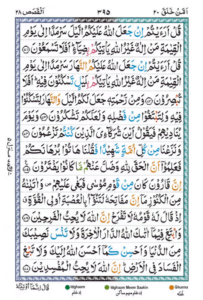 اَمَّنْ خَلَقَ ٢٠ ٣٩٥ اَلْقَصَص ٢٨
قُلْ اَرَءَيْتُمْ اِنْ جَعَلَ اللّٰهُ عَلَيْكُمُ الَّيْلَ سَرْمَدًا اِلٰى يَوْمِ
الْقِيٰمَةِ مَنْ اِلٰهٌ غَيْرُ اللّٰهِ يَاْتِيْكُمْ بِضِيَآءٍ اَفَلَا تَسْمَعُوْنَ
قُلْ اَرَءَيْتُمْ اِنْ جَعَلَ اللّٰهُ عَلَيْكُمُ النَّهَارَ سَرْمَدًا اِلٰى يَوْمِ
الْقِيٰمَةِ مَنْ اِلٰهٌ غَيْرُ اللّٰهِ يَاْتِيْكُمْ بِلَيْلٍ تَسْكُنُوْنَ فِيْهِ اَفَلَا
تُبْصِرُوْنَ وَمِنْ رَّحْمَتِهٖ جَعَلَ لَكُمُ الَّيْلَ وَالنَّهَارَ لِتَسْكُنُوْا
فِيْهِ وَلِتَبْتَغُوْا مِنْ فَضْلِهٖ وَلَعَلَّكُمْ تَشْكُرُوْنَ وَيَوْمَ
يُنَادِيْهِمْ فَيَقُوْلُ اَيْنَ شُرَكَآءِيَ الَّذِيْنَ كُنْتُمْ تَزْعُمُوْنَ
وَنَزَعْنَا مِنْ كُلِّ اُمَّةٍ شَهِيْدًا فَقُلْنَا هَاتُوْا بُرْهَانَكُمْ
فَعَلِمُوْٓا اَنَّ الْحَقَّ لِلّٰهِ وَضَلَّ عَنْهُمْ مَّا كَانُوْا يَفْتَرُوْنَ
اِنَّ قَارُوْنَ كَانَ مِنْ قَوْمِ مُوْسٰى فَبَغٰى عَلَيْهِمْ وَاٰتَيْنٰهُ
مِنَ الْكُنُوْزِ مَآ اِنَّ مَفَاتِحَهٗ لَتَنُوْٓاُ بِالْعُصْبَةِ اُولِي الْقُوَّةِ
اِذْ قَالَ لَهٗ قَوْمُهٗ لَا تَفْرَحْ اِنَّ اللّٰهَ لَا يُحِبُّ الْفَرِحِيْنَ
وَابْتَغِ فِيْمَآ اٰتٰىكَ اللّٰهُ الدَّارَ الْاٰخِرَةَ وَلَا تَنْسَ نَصِيْبَكَ
مِنَ الدُّنْيَا وَاَحْسِنْ كَمَآ اَحْسَنَ اللّٰهُ اِلَيْكَ وَلَا تَبْغِ
الْفَسَادَ فِي الْاَرْضِ اِنَّ اللّٰهَ لَا يُحِبُّ الْمُفْسِدِيْنَ